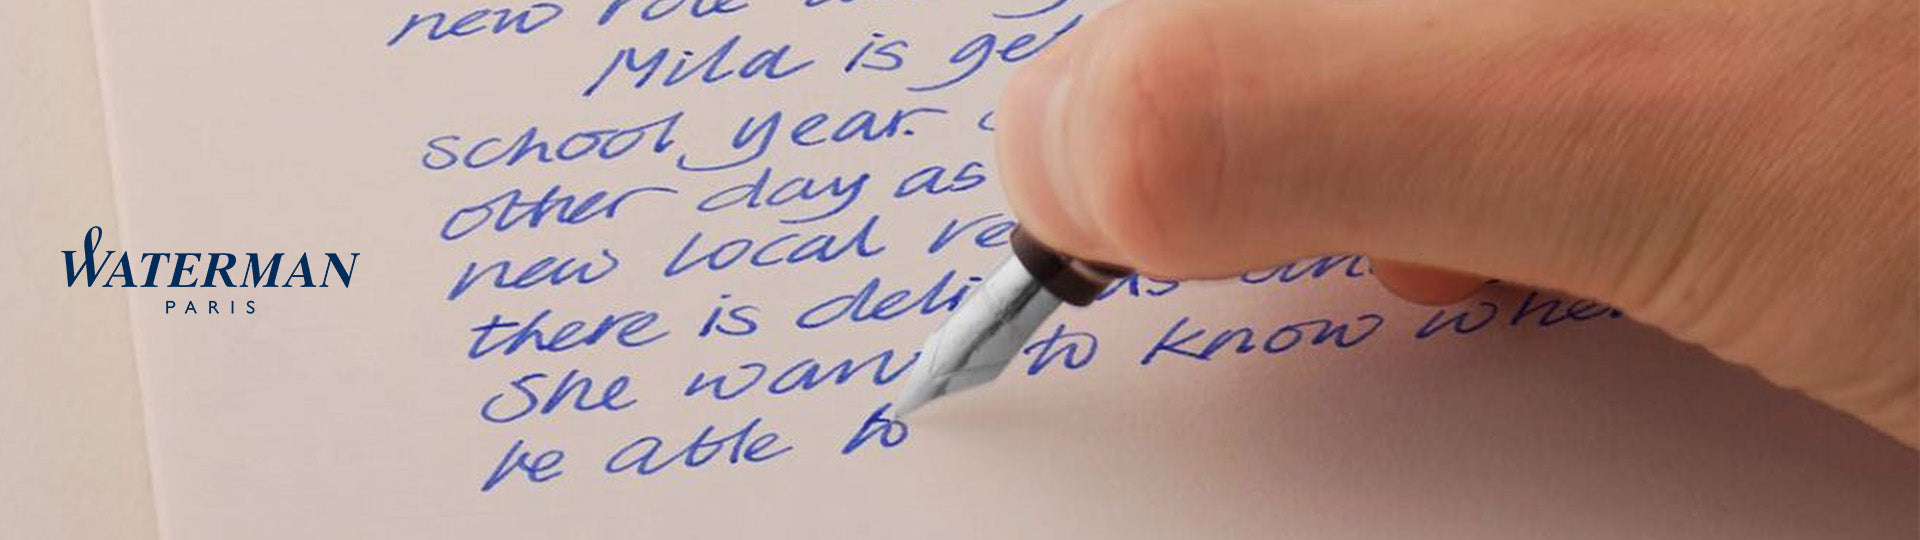 WATERMAN
PARIS
new role
Mila is ge
school year.
other day as
new local re
there is deli us and
She wan to know whe
re able to